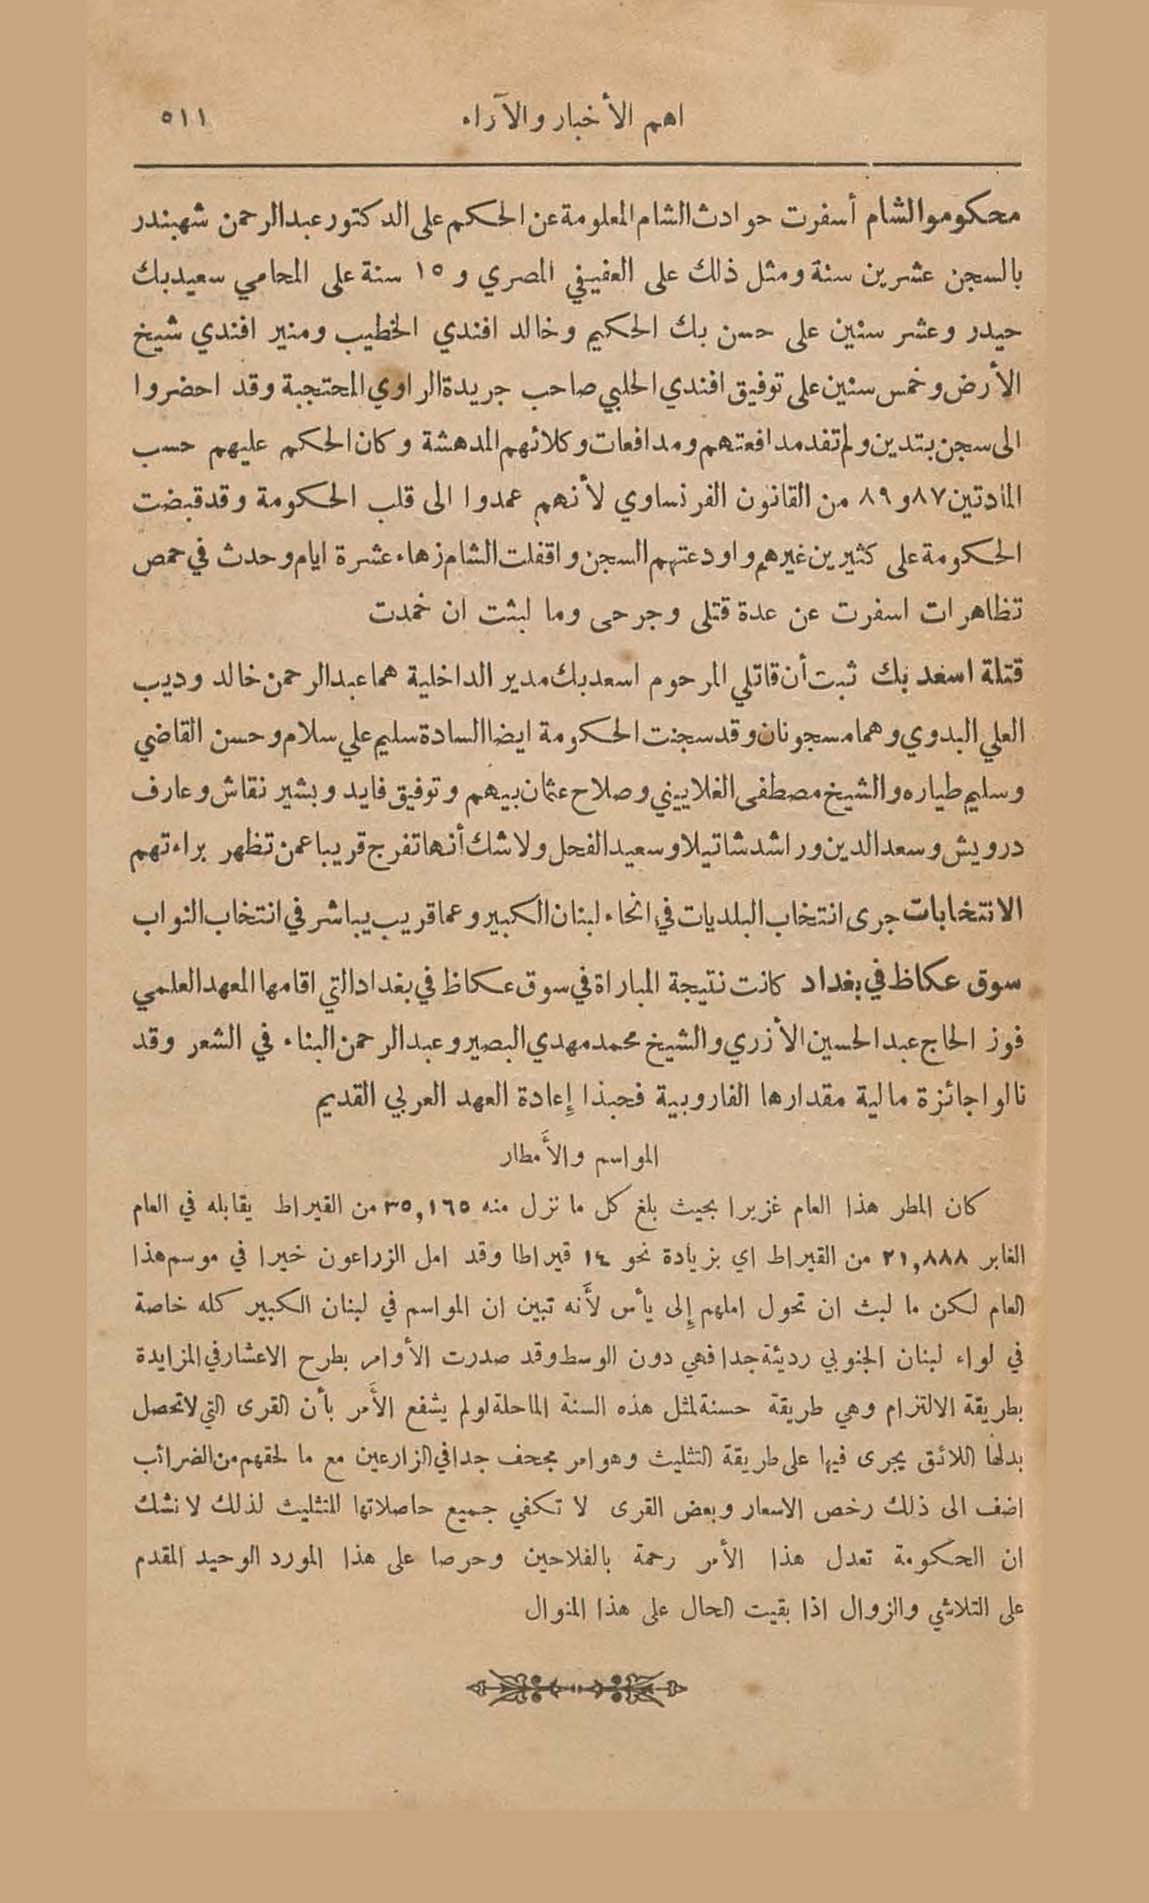 اهم الأخبار والآراء ٥١١
محكومو الشام أسفرت حوادث الشام المعلومة عن الحكم على الدكتور عبد الرحمن شهبندر
بالسجن عشرين سنة ومثل ذلك على العفيفي المصري و ١٥ سنة على المحامي سعيد بك
حيدر وعشر سنين على حسن بك الحكيم وخالد افندي الخطيب ومنير افندي شيخ
الأرض وخمس سنين على توفيق افندي الحلبي صاحب جريدة الراوي المحتجبة وقد احضروا
الى سجن بتدين ولم تفد مدافعتهم ومدافعات وكلائهم المدهشة وكان الحكم عليهم حسب
المادتين ٨٧ و ٨٩ من القانون الفرنساوي لأنهم عمدوا الى قلب الحكومة وقد قبضت
الحكومة على كثيرين غيرهم واودعتهم السجن واقفلت الشام زهاء عشرة ايام وحدث في حمص
تظاهرات اسفرت عن عدة قتلى وجرحى وما لبثت ان خمدت
قتلة اسعد بك ثبت أن قاتلي المرحوم اسعد بك مدير الداخلية هما عبد الرحمن خالد وديب
العلي البدوي وهما مسجونان وقد سجنت الحكومة ايضا السادة سليم علي سلام وحسن القاضي
وسليم طياره والشيخ مصطفى الغلاييني وصلاح عثمان بيهم وتوفيق فايد وبشير نقاش وعارف
درويش وسعد الدين وراشد شاتيلا وسعيد الفحل ولا شك أنها تفرج قريبا عمن تظهر براءتهم
الانتخابات جرى انتخاب البلديات في انحاء لبنان الكبير وعما قريب يباشر في انتخاب النواب
سوق عكاظ في بغداد كانت نتيجة المباراة في سوق عكاظ في بغداد التي اقامها المعهد العلمي
فوز الحاج عبد الحسين الأزري والشيخ محمد مهدي البصير وعبد الرحمن البناء في الشعر وقد
نالوا جائزة مالية مقدارها الفا روبية فحبذا إعادة العهد العربي القديم
المواسم والأمطار
كان المطر هذا العام غزيرا بحيث بلغ كل ما نزل منه ٣٥,١٦٥ من القيراط يقابله في العام
الغابر ٢١,٨٨٨ من القيراط اي بزيادة نحو ١٤ قيراطا وقد امل الزراعون خيرا في موسم هذا
العام لكن ما لبث ان تحول املهم إلى يأس لأنه تبين ان المواسم في لبنان الكبير كله خاصة
في لواء لبنان الجنوبي رديئة جدا فهي دون الوسط وقد صدرت الأوامر بطرح الاعشار في المزايدة
بطريقة الالتزام وهي طريقة حسنة لمثل هذه السنة الماحلة لو لم يشفع الأمر بأن القرى التي لا تحصل
بدلها اللائق يجرى فيها على طريقة التثليث وهو امر مجحف جدا في الزارعين مع ما لحقهم من الضرائب
اضف الى ذلك رخص الاسعار وبعض القرى لا تكفي جميع حاصلاتها للتثليث لذلك لا نشك
ان الحكومة تعدل هذا الأمر رحمة بالفلاحين وحرصا على هذا المورد الوحيد المقدم
على التلاشي والزوال اذا بقيت الحال على هذا المنوال